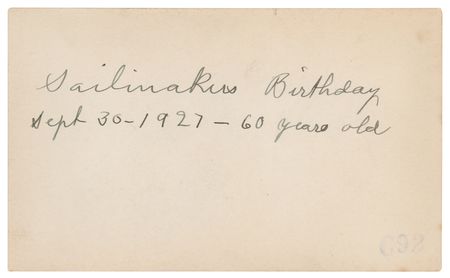 Sailmakers Birthday
Sept 30-1927 - 60 years old